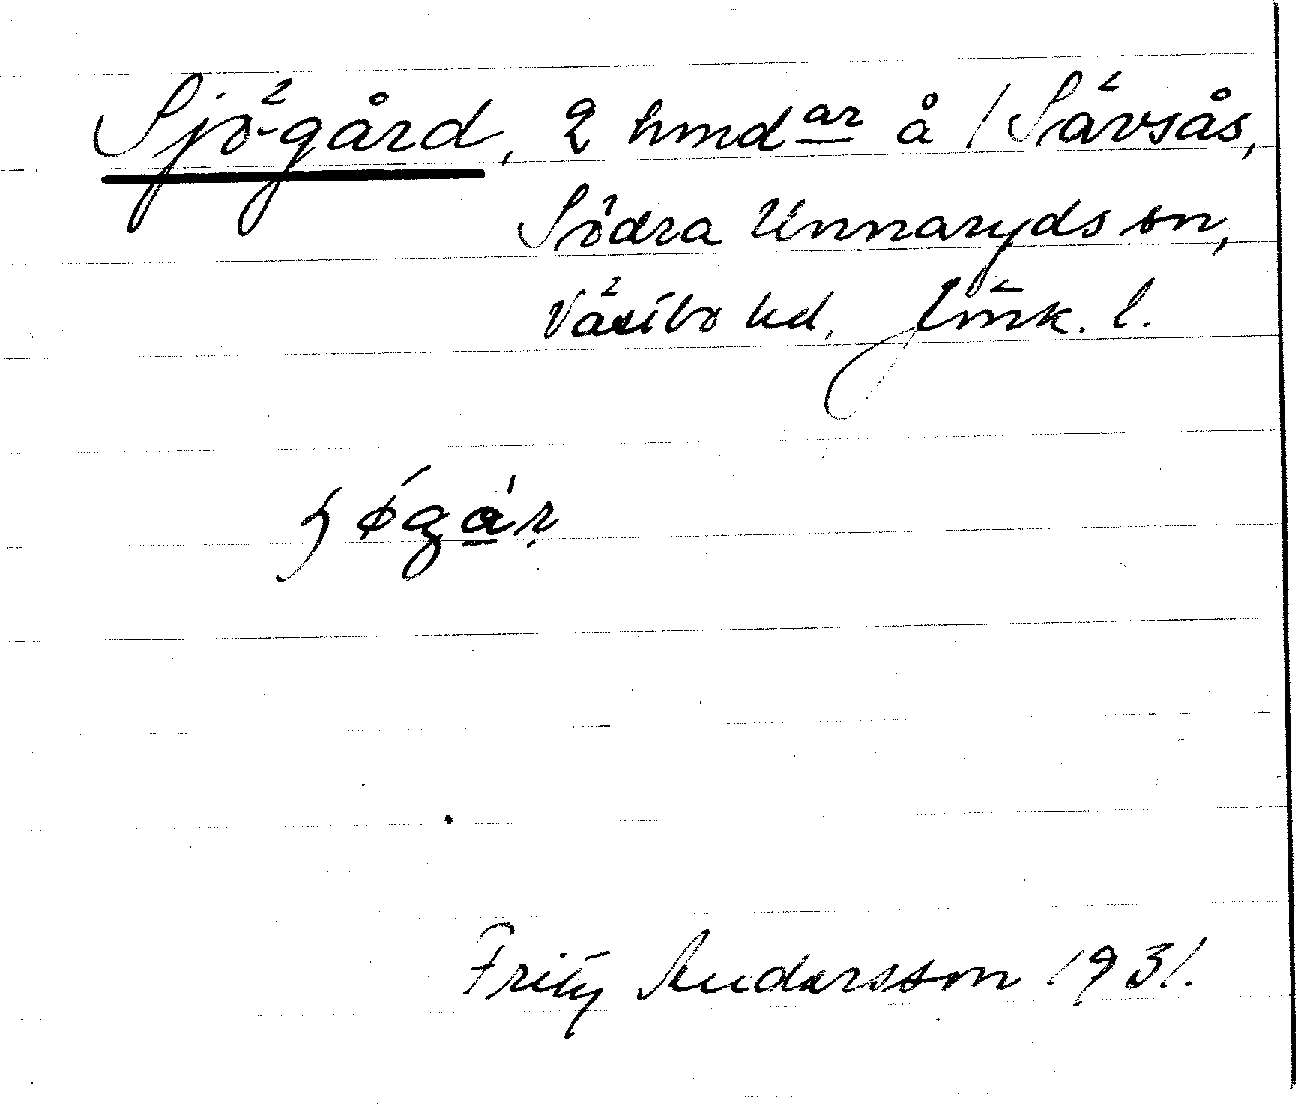 Sjögård, 2 hmdar å / Sävsås,
Södra Unnaryds sn,
Västbo hd, Jönk. l.
Fritz Andersson 1931.